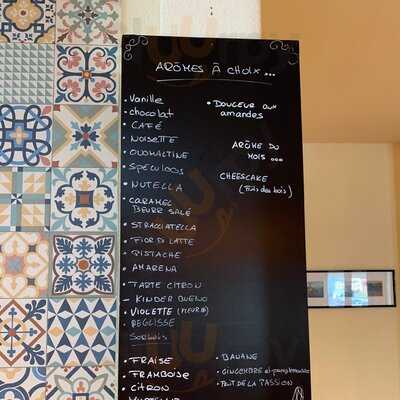 ARÔMES À CHOIX...
• Vanille
• chocolat
• CAFÉ
• NOISETTE
• OVOMALTINE
• SPÉCULOOS
• NUTELLA
• CARAMEL
BEURRE SALÉ
• STRACCIATELLA
• FIOR DI LATTE
• PISTACHE
• AMARENA
• TARTE CITRON
– KINDER BUENO
• VIOLETTE (FLEUR)
• REGLISSE
Sorbets
• FRAISE
• FRAMBOISE
• CITRON
• DOUCEUR AUX
amandes
ARÔME DU
MOIS ...
CHEESCAKE
(Fruits des bois)
• BANANE
• GINGEMBRE et pamplemousse
• FRUIT DE LA PASSION